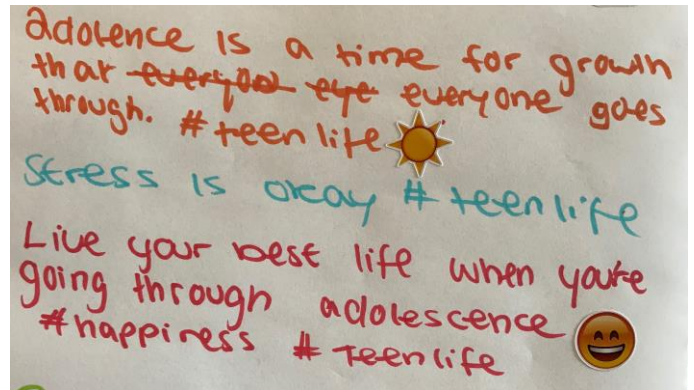 adolence is a time for growth
that everyone goes
through. #teenlife
Stress is okay #teenlife
Live your best life when you're
going through adolescence
#happiness #Teenlife